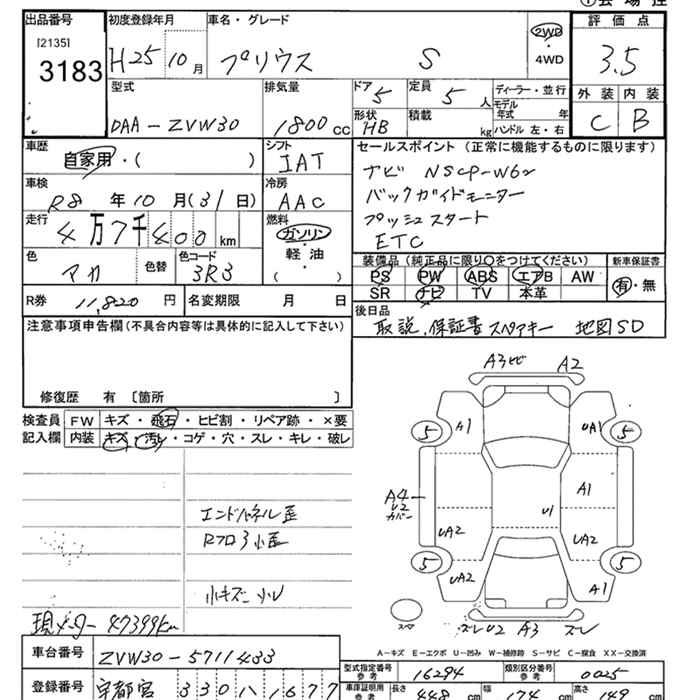 ①会場控
出品番号 初度登録年月 車名・グレード 2WD 評価点
[2135] 3183 H25年10月 プリウス S 4WD 3.5
型式 排気量 ドア 5 定員 5人 ディーラー・並行 外装 内装
DAA-ZVW30 1800cc 形状 HB 積載 kg モデル年式 年 ハンドル 左・右 C B
車歴 シフト セールスポイント(正常に機能するものに限ります)
自家用・( ) IAT ナビ NSCP-W62
車検 冷房 バックガイドモニター
R8年10月(31日) AAC プッシュスタート
走行 燃料 ETC
4万7千400km ガソリン
軽油
( )
色 色替 色コード 装備品(純正品に限り○をつけてください) 新車保証書
マカ 3R3 PS PW ABS エアB AW 有・無
SR ナビ TV 本革
R券 11,820円 名変期限 月 日 後日品
取説、保証書 スペアキー 地図SD
注意事項申告欄(不具合内容等は具体的に記入して下さい)
修復歴 有〔箇所 〕
検査員 FW キズ・飛石・ヒビ割・リペア跡・×要
記入欄 内装 キズ・汚れ・コゲ・穴・スレ・キレ・破レ
A3ヒビ A2
5 A1 UA1 5
A4 A1
U2
カバー
U1
UA2 UA2
5 UA2 A1 5
スレ U2 A3 スレ
エンドパネル歪
Rフロ3小歪
小キズニ小レ
現メーター 47399km
A-キズ E-エクボ U-凹み W-補修跡 S-サビ C-腐食 XX-交換済
車台番号 ZVW30-5711433
型式指定番号 参考 16294 類別区分番号 参考 0025
登録番号 宇都宮 330ハ1677
車庫証明用 参考 長さ 448cm 幅 174cm 高さ 149cm